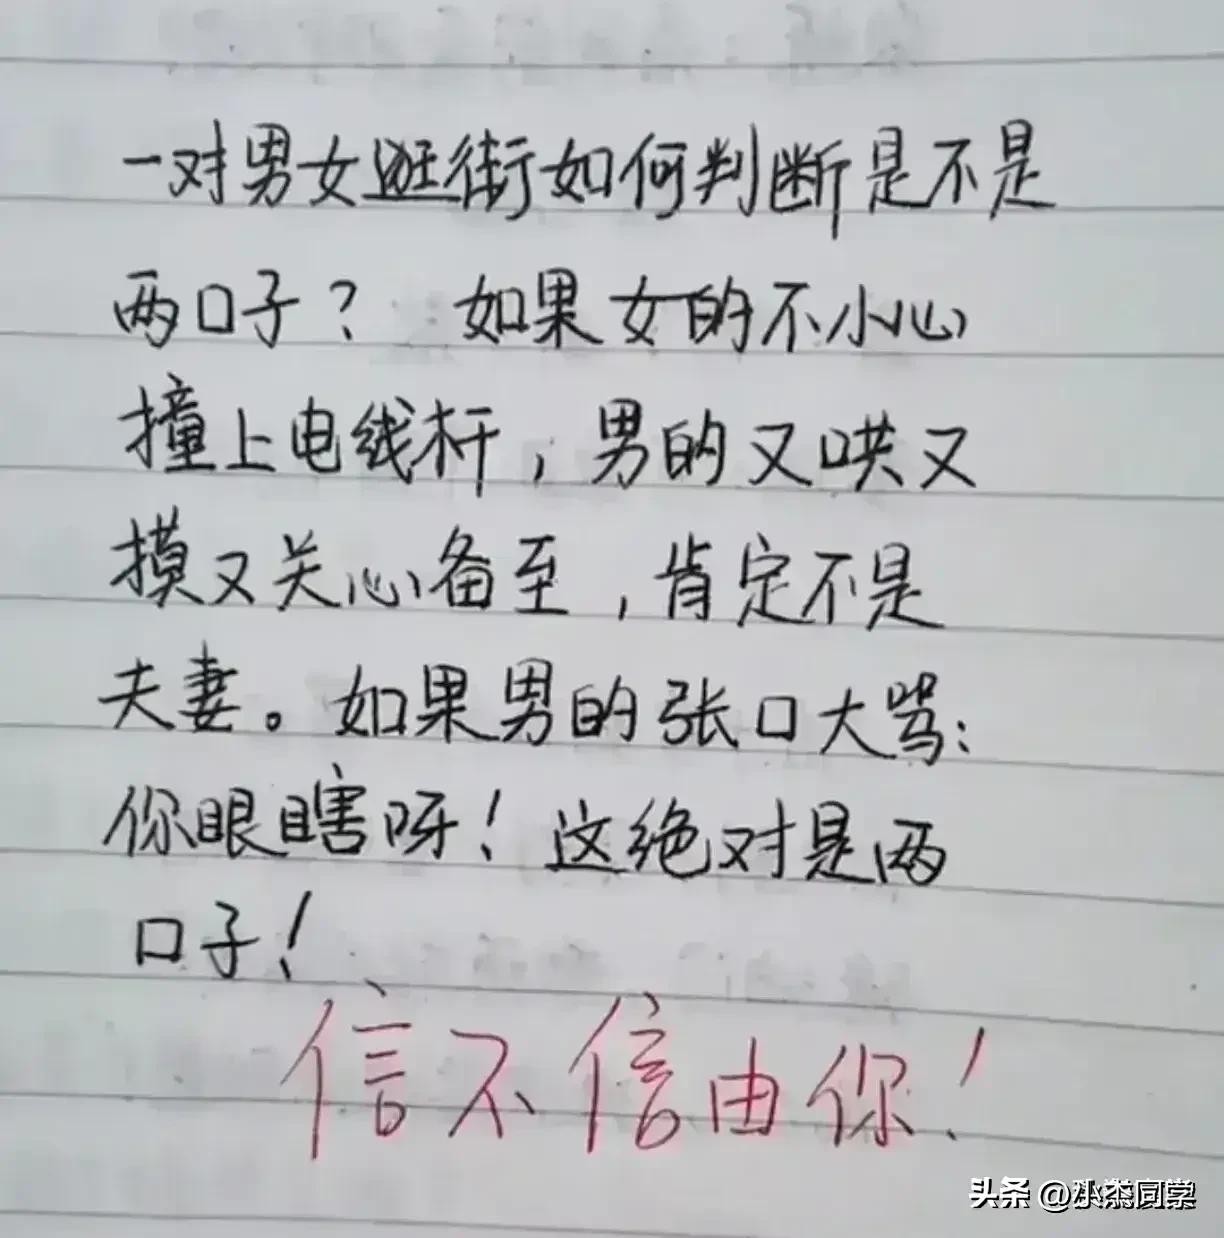 一对男女逛街如何判断是不是
两口子? 如果女的不小心
撞上电线杆，男的又哄又
摸又关心备至，肯定不是
夫妻。如果男的张口大骂:
你眼瞎呀！这绝对是两
口子！
信不信由你！
头条